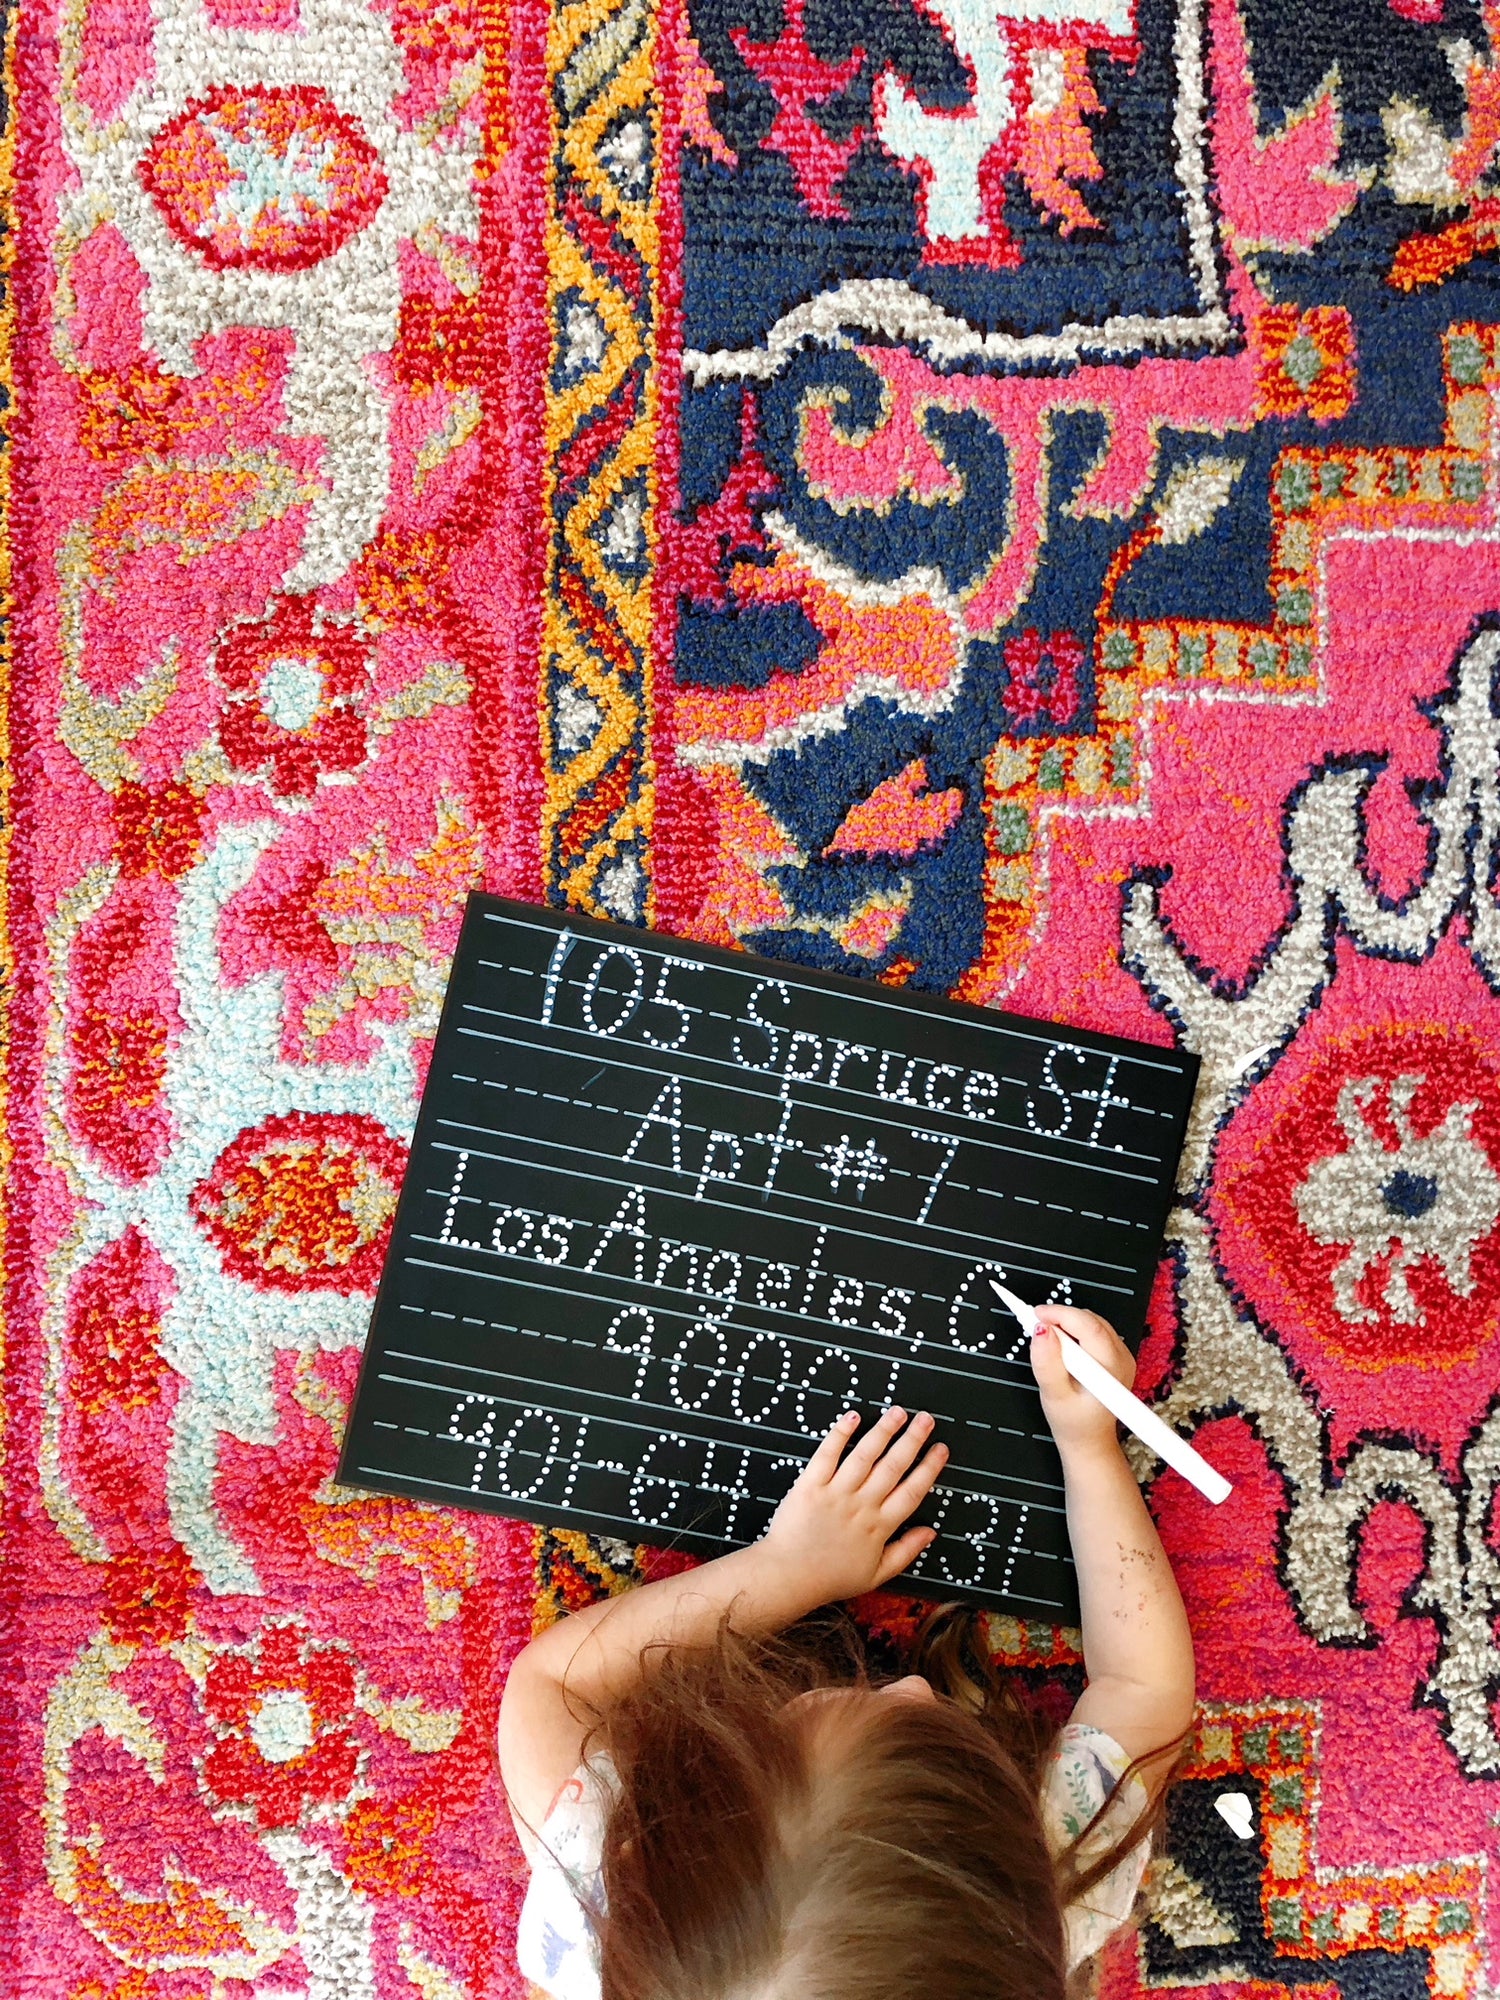 105 Spruce St.
Apt #7
Los Angeles, CA
90001
901-647 731